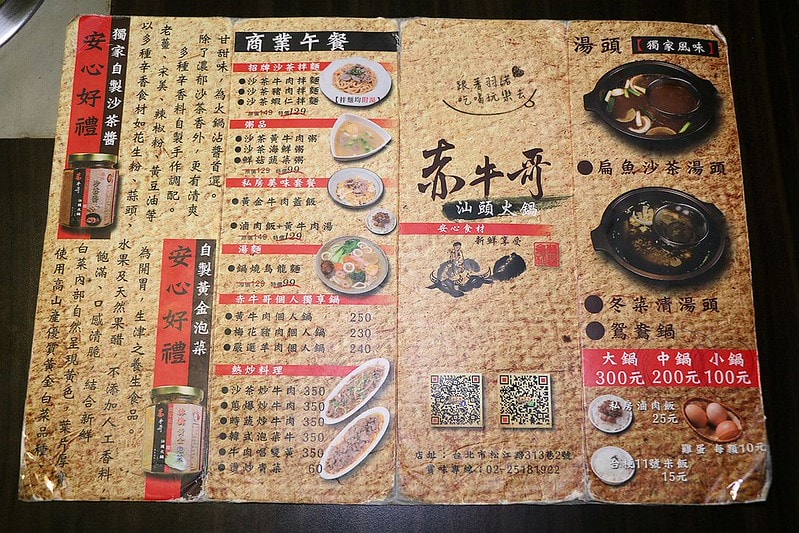 獨家自製沙茶醬
安心好禮
甘甜味,為火鍋沾醬首選。
除了濃郁沙茶香外,更有清爽
多種辛香料自製手作調配。
老薑、宋美、辣椒粉、黃豆油等
以多種辛香食材如花生粉、蒜頭、
自製黃金泡菜
安心好禮
為開胃,生津之養生食品。
水果及天然果醋,不添加人工香料,
飽滿,口感清脆,結合新鮮
白菜內部自然呈現黃色。葉片厚實
使用高山產優質黃金白菜品種,
商業午餐
招牌沙茶拌麵
●沙茶牛肉拌麵
●沙茶豬肉拌麵
●沙茶蝦仁拌麵
原價149 特價99
【拌麵均附湯】
粥品
●沙茶黃牛肉粥
●沙茶海鮮粥
●鮮菇蔬菜粥
特價99
私房美味套餐
●黃金牛肉蓋飯
●滷肉飯+黃牛肉湯
特價129
湯麵
●鍋燒烏龍麵
原價129 特價99
赤牛哥個人獨享鍋
●黃牛肉個人鍋 250
●梅花豬肉個人鍋 230
●嚴選羊肉個人鍋 240
熱炒料理
●沙茶炒牛肉 350
●蔥爆炒牛肉 350
●時蔬炒牛肉 350
●韓式泡菜牛 350
●牛肉唱雙黃 350
●燙炒青菜 60
跟著羽諾
吃喝玩樂去
赤牛哥
汕頭火鍋
安心食材
新鮮享受
店址:台北市松江路313巷2號
賞味專線:02-25181922
湯頭【獨家風味】
●扁魚沙茶湯頭
●冬菜清湯頭
●鴛鴦鍋
大鍋 中鍋 小鍋
300元 200元 100元
私房滷肉飯
25元
雞蛋 每顆10元
台梗11號米飯
15元